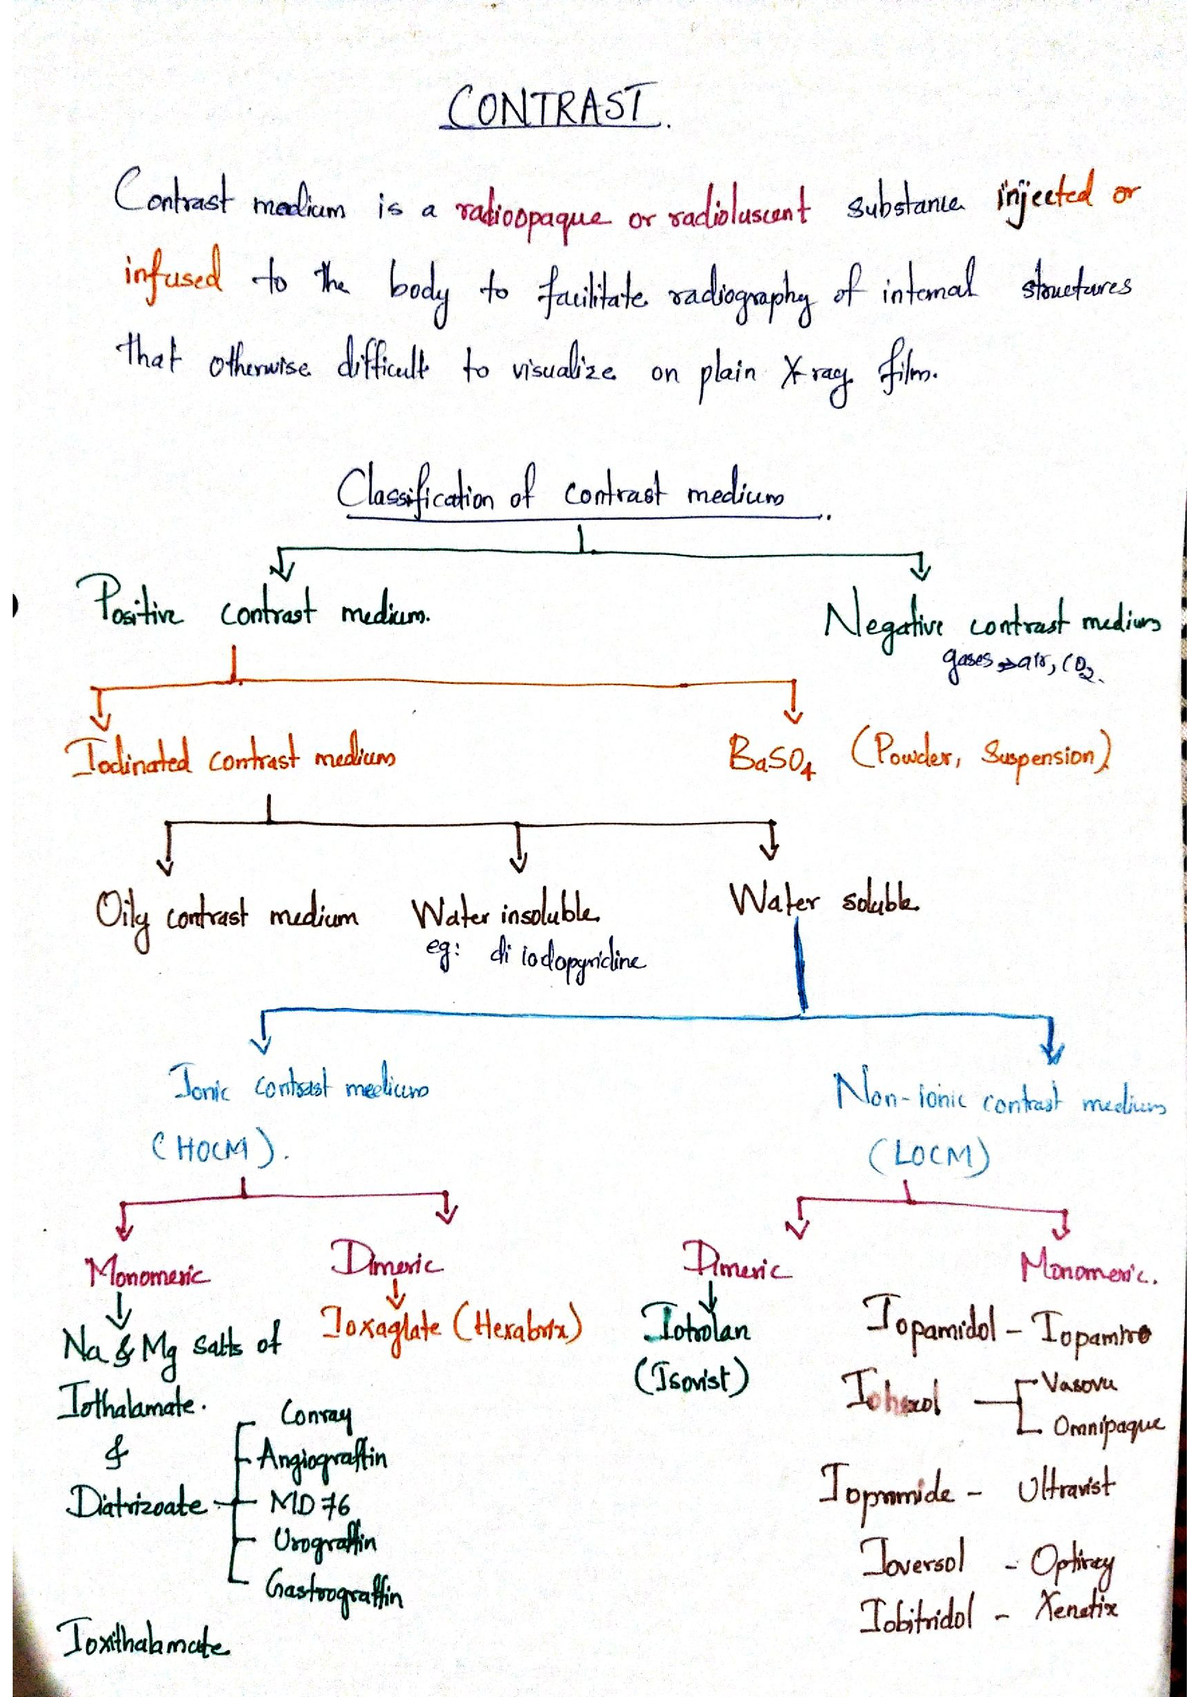 CONTRAST.
Contrast medium is a radioopaque or radioluscent substance injected or
infused to the body to facilitate radiography of internal structures
that otherwise difficult to visualize on plain X-ray film.
Classification of contrast medium.
Positive contrast medium.
Negative contrast medium
gases → air, CO2.
Iodinated contrast medium
BaSO4 (Powder, Suspension)
Oily contrast medium
Water insoluble
eg: di iodopyridine
Water soluble
Ionic contrast medium
(HOCM).
Non-ionic contrast medium
(LOCM)
Monomeric
Na & Mg salts of
Iothalamate.
&
Diatrizoate
Conray
Angiograffin
MD 76
Urograffin
Gastrograffin
Ioxithalamate
Dimeric
Ioxaglate (Hexabrix)
Dimeric
Iotrolan
(Isovist)
Monomeric.
Iopamidol - Iopamiro
Iohexol
Vasovu
Omnipaque
Iopromide - Ultravist
Ioversol - Optiray
Iobitridol - Xenetix